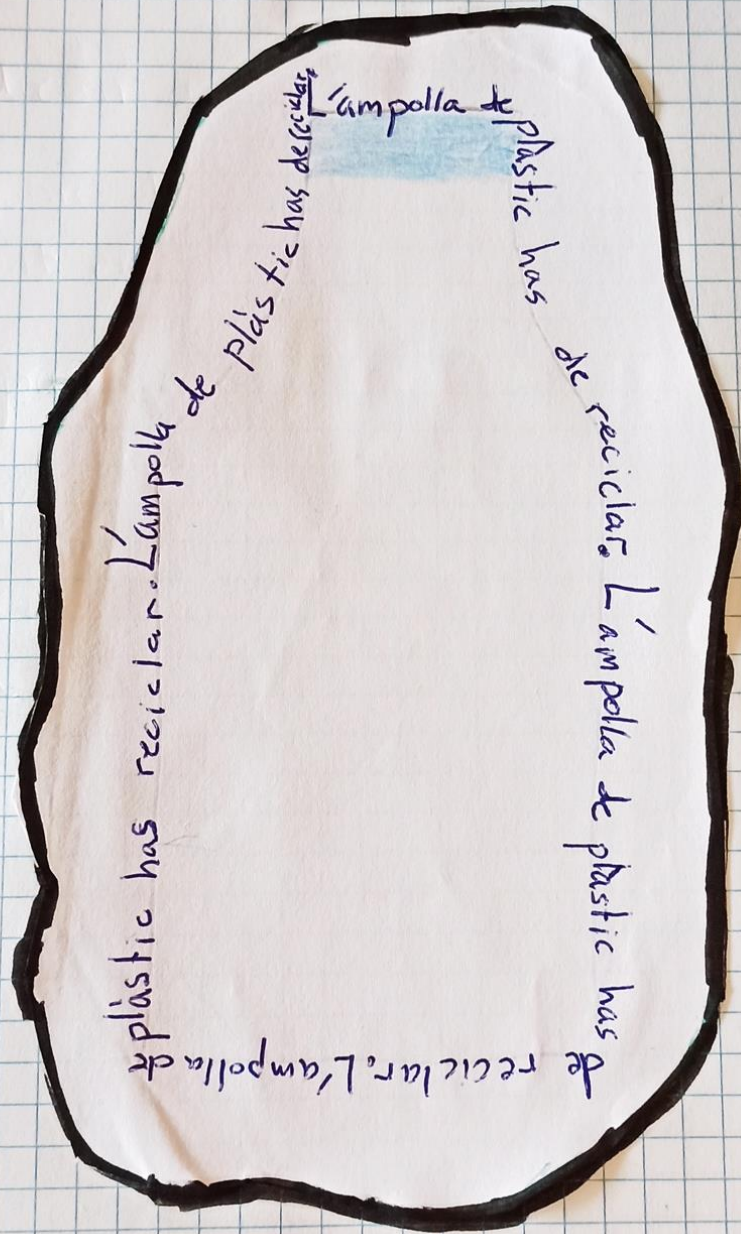 L'ampolla de
plàstic has de reciclar. L'ampolla de plastic has
de reciclar. L'ampolla de
plàstic has reciclar. L'ampolla de plàstic has de reciclar.